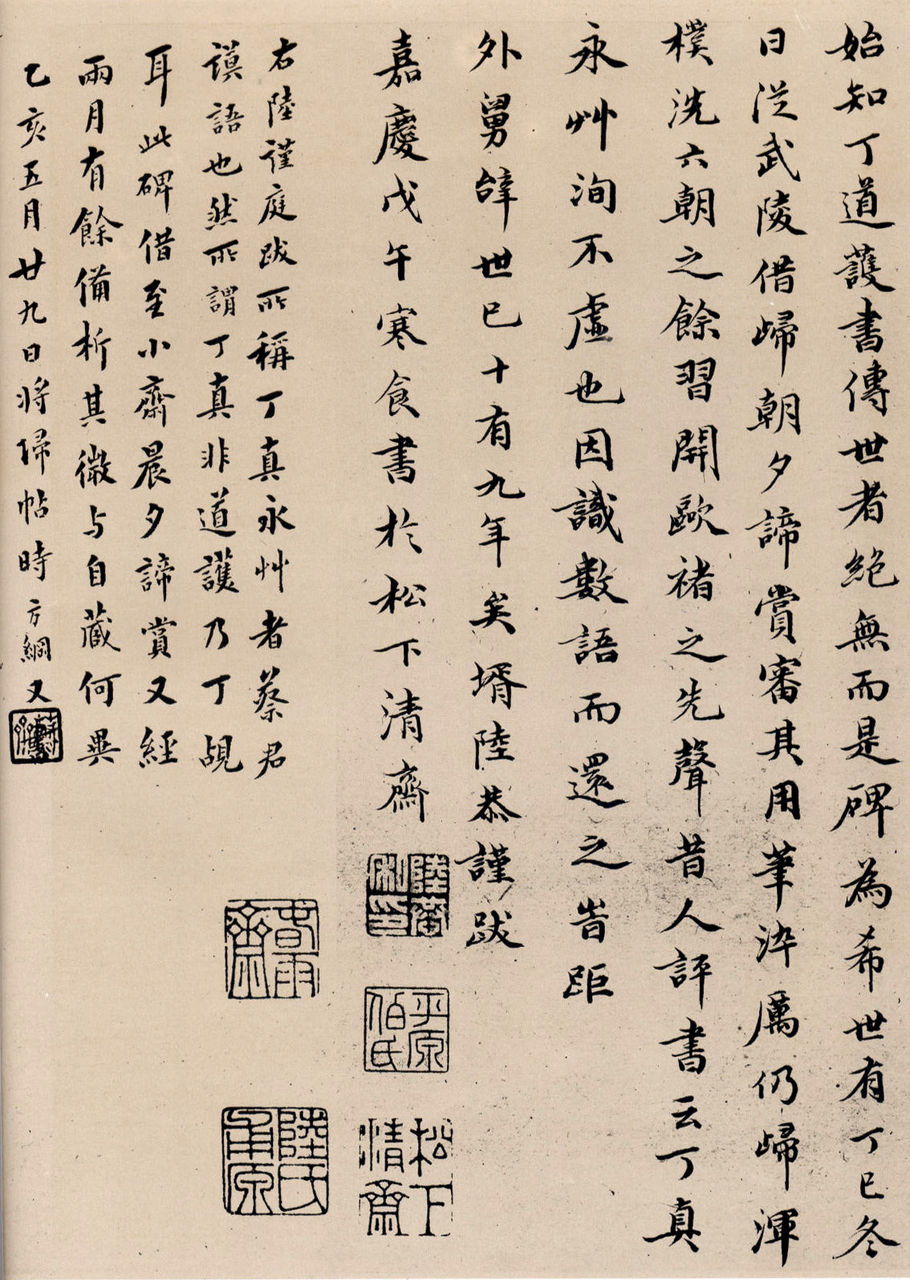 始知丁道護書傳世者絕無而是碑為希世有丁巳冬
日從武陵借歸朝夕諦賞審其用筆淬厲仍歸渾
樸洗六朝之餘習開歐褚之先聲昔人評書云丁真
永艸洵不虛也因識數語而還之旹距
外舅辭世已十有九年矣壻陸恭謹跋
嘉慶戊午寒食書於松下清齋
平原伯氏
松下清齋
右陸謹庭跋所稱丁真永艸者蔡君
謨語也然所謂丁真非道護乃丁覘
耳此碑借至小齋晨夕諦賞又經
兩月有餘備析其微与自藏何異
乙亥五月廿九日將歸帖時方綱又
春雨齋